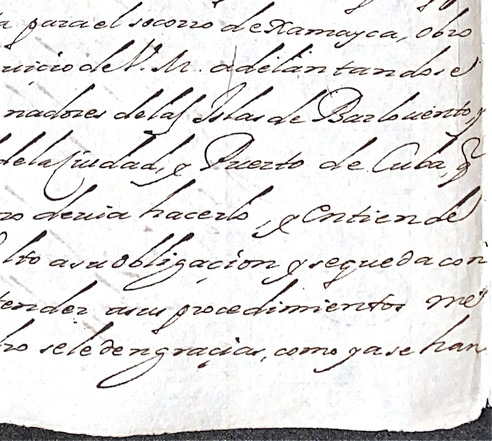 para el socorro de Xamayca, obro
uicio de V. M. adelantandose
nadores de las Islas de Barlouento, y
de la Ciudad, y Puerto de Cuba, q
ro deuia hacerlo, y entiende
lto a su obligaçion y se queda con
tender a sus procedimientos
ho se le den graçias, como ya se han